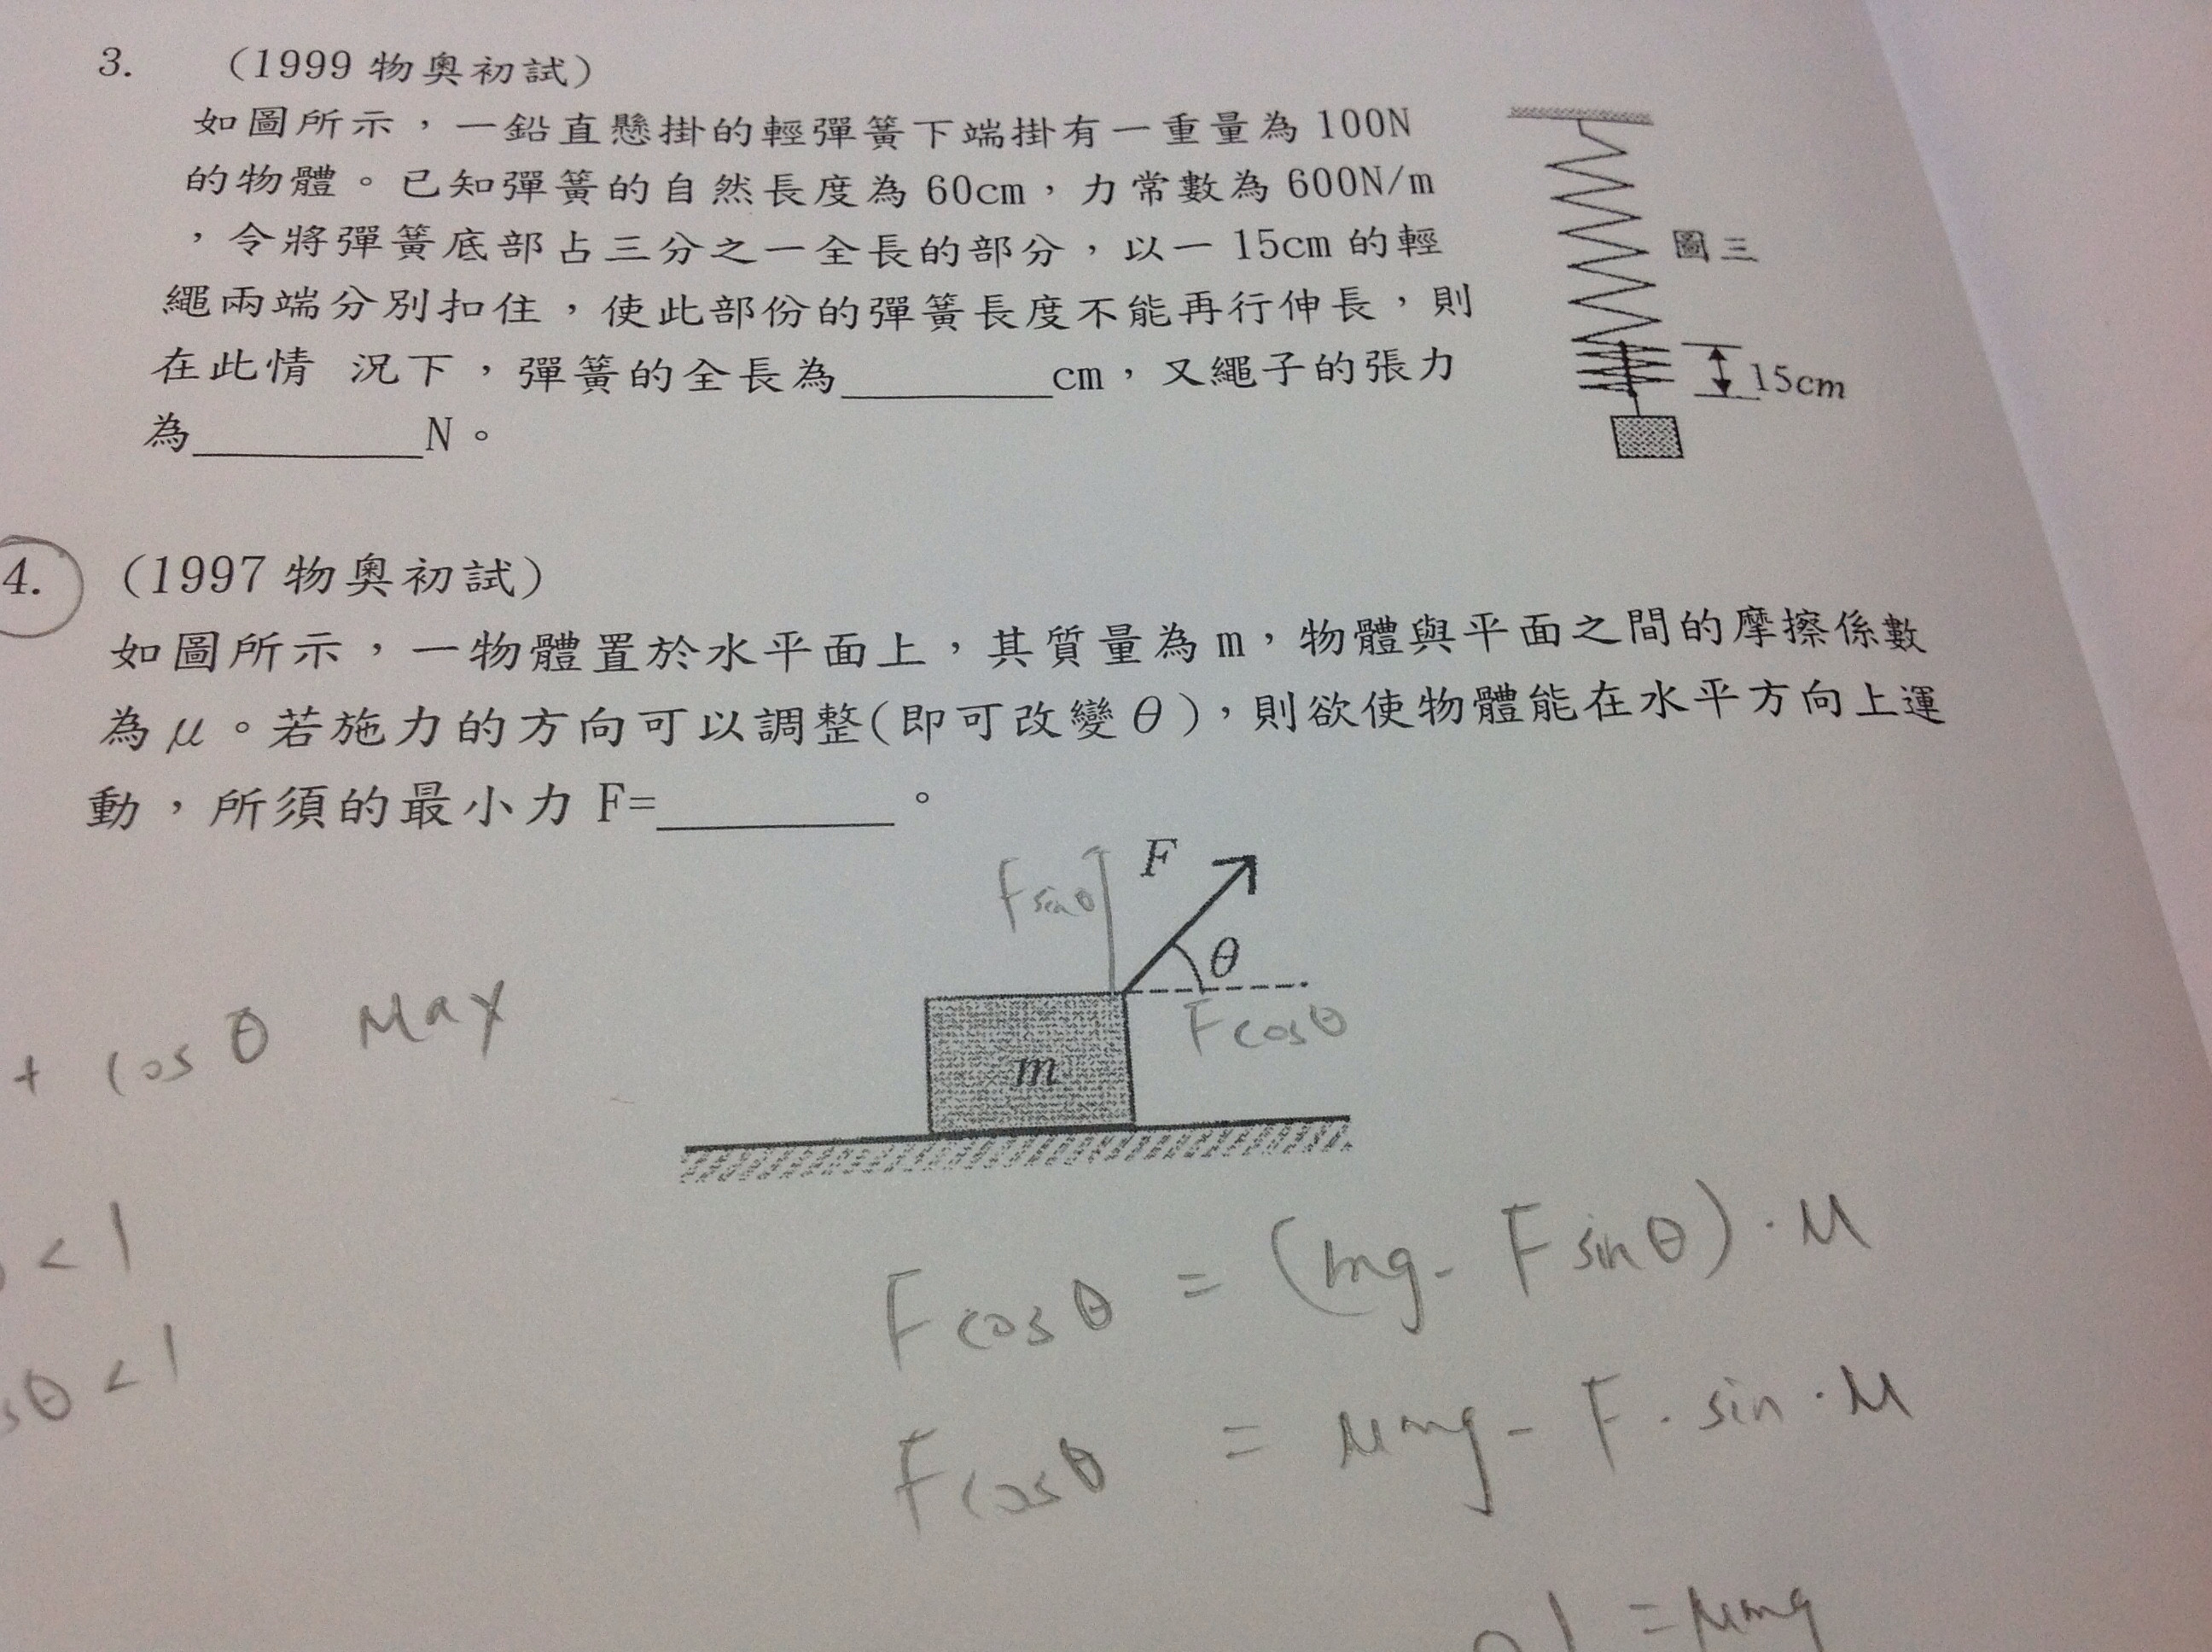 3. （1999 物奧初試）
如圖所示，一鉛直懸掛的輕彈簧下端掛有一重量為 100N
的物體。已知彈簧的自然長度為 60cm，力常數為 600N/m
，令將彈簧底部占三分之一全長的部分，以一 15cm 的輕
繩兩端分別扣住，使此部份的彈簧長度不能再行伸長，則
在此情 況下，彈簧的全長為________cm，又繩子的張力
為________N。
圖三
15cm
4. （1997 物奧初試）
如圖所示，一物體置於水平面上，其質量為 m，物體與平面之間的摩擦係數
為 μ。若施力的方向可以調整(即可改變 θ)，則欲使物體能在水平方向上運
動，所須的最小力 F=________。
F sinθ
F
θ
F cosθ
m
+ cos θ Max
< 1
sθ < 1
F cosθ = (mg - F sinθ)·μ
F cosθ = μmg - F · sin · μ
= μmg